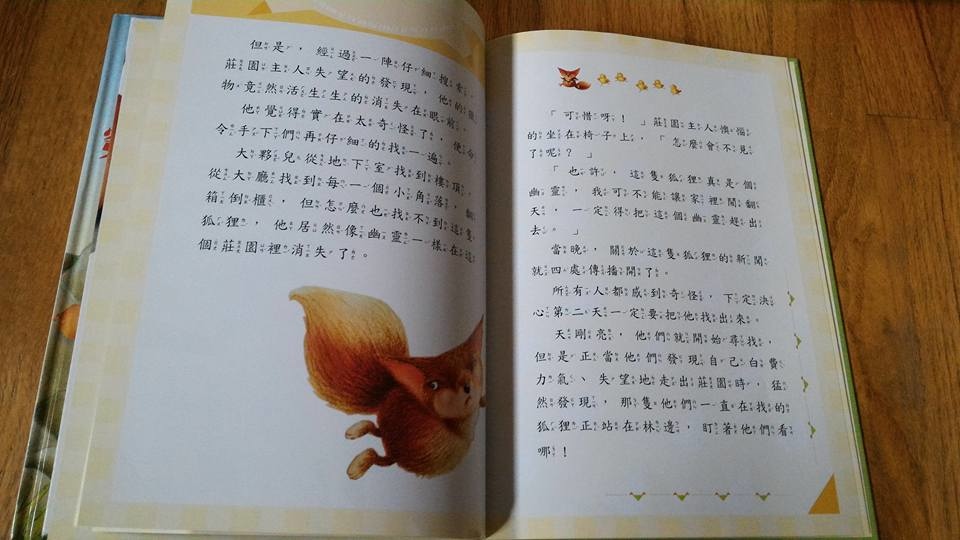 但是，經過一陣仔細搜索，
莊園主人失望的發現，他的獵
物竟然活生生的消失在眼前。
他覺得實在太奇怪了，便命
令手下們再仔細的找一遍。
大夥兒從地下室找到樓頂，
從大廳找到每一個小角落，翻
箱倒櫃，但怎麼也找不到這隻
狐狸，他居然像幽靈一樣在這
個莊園裡消失了。
「可惜呀！」莊園主人懊惱
的坐在椅子上，「怎麼會不見
了呢？」
「也許，這隻狐狸真是個
幽靈，我可不能讓家裡鬧翻
天，一定得把這個幽靈趕出
去。」
當晚，關於這隻狐狸的新聞
就四處傳播開了。
所有人都感到奇怪，下定決
心第二天一定要把他找出來。
天剛亮，他們就開始尋找，
但是正當他們發現自己白費
力氣、失望地走出莊園時，猛
然發現，那隻他們一直在找的
狐狸正站在林邊，盯著他們看
哪！